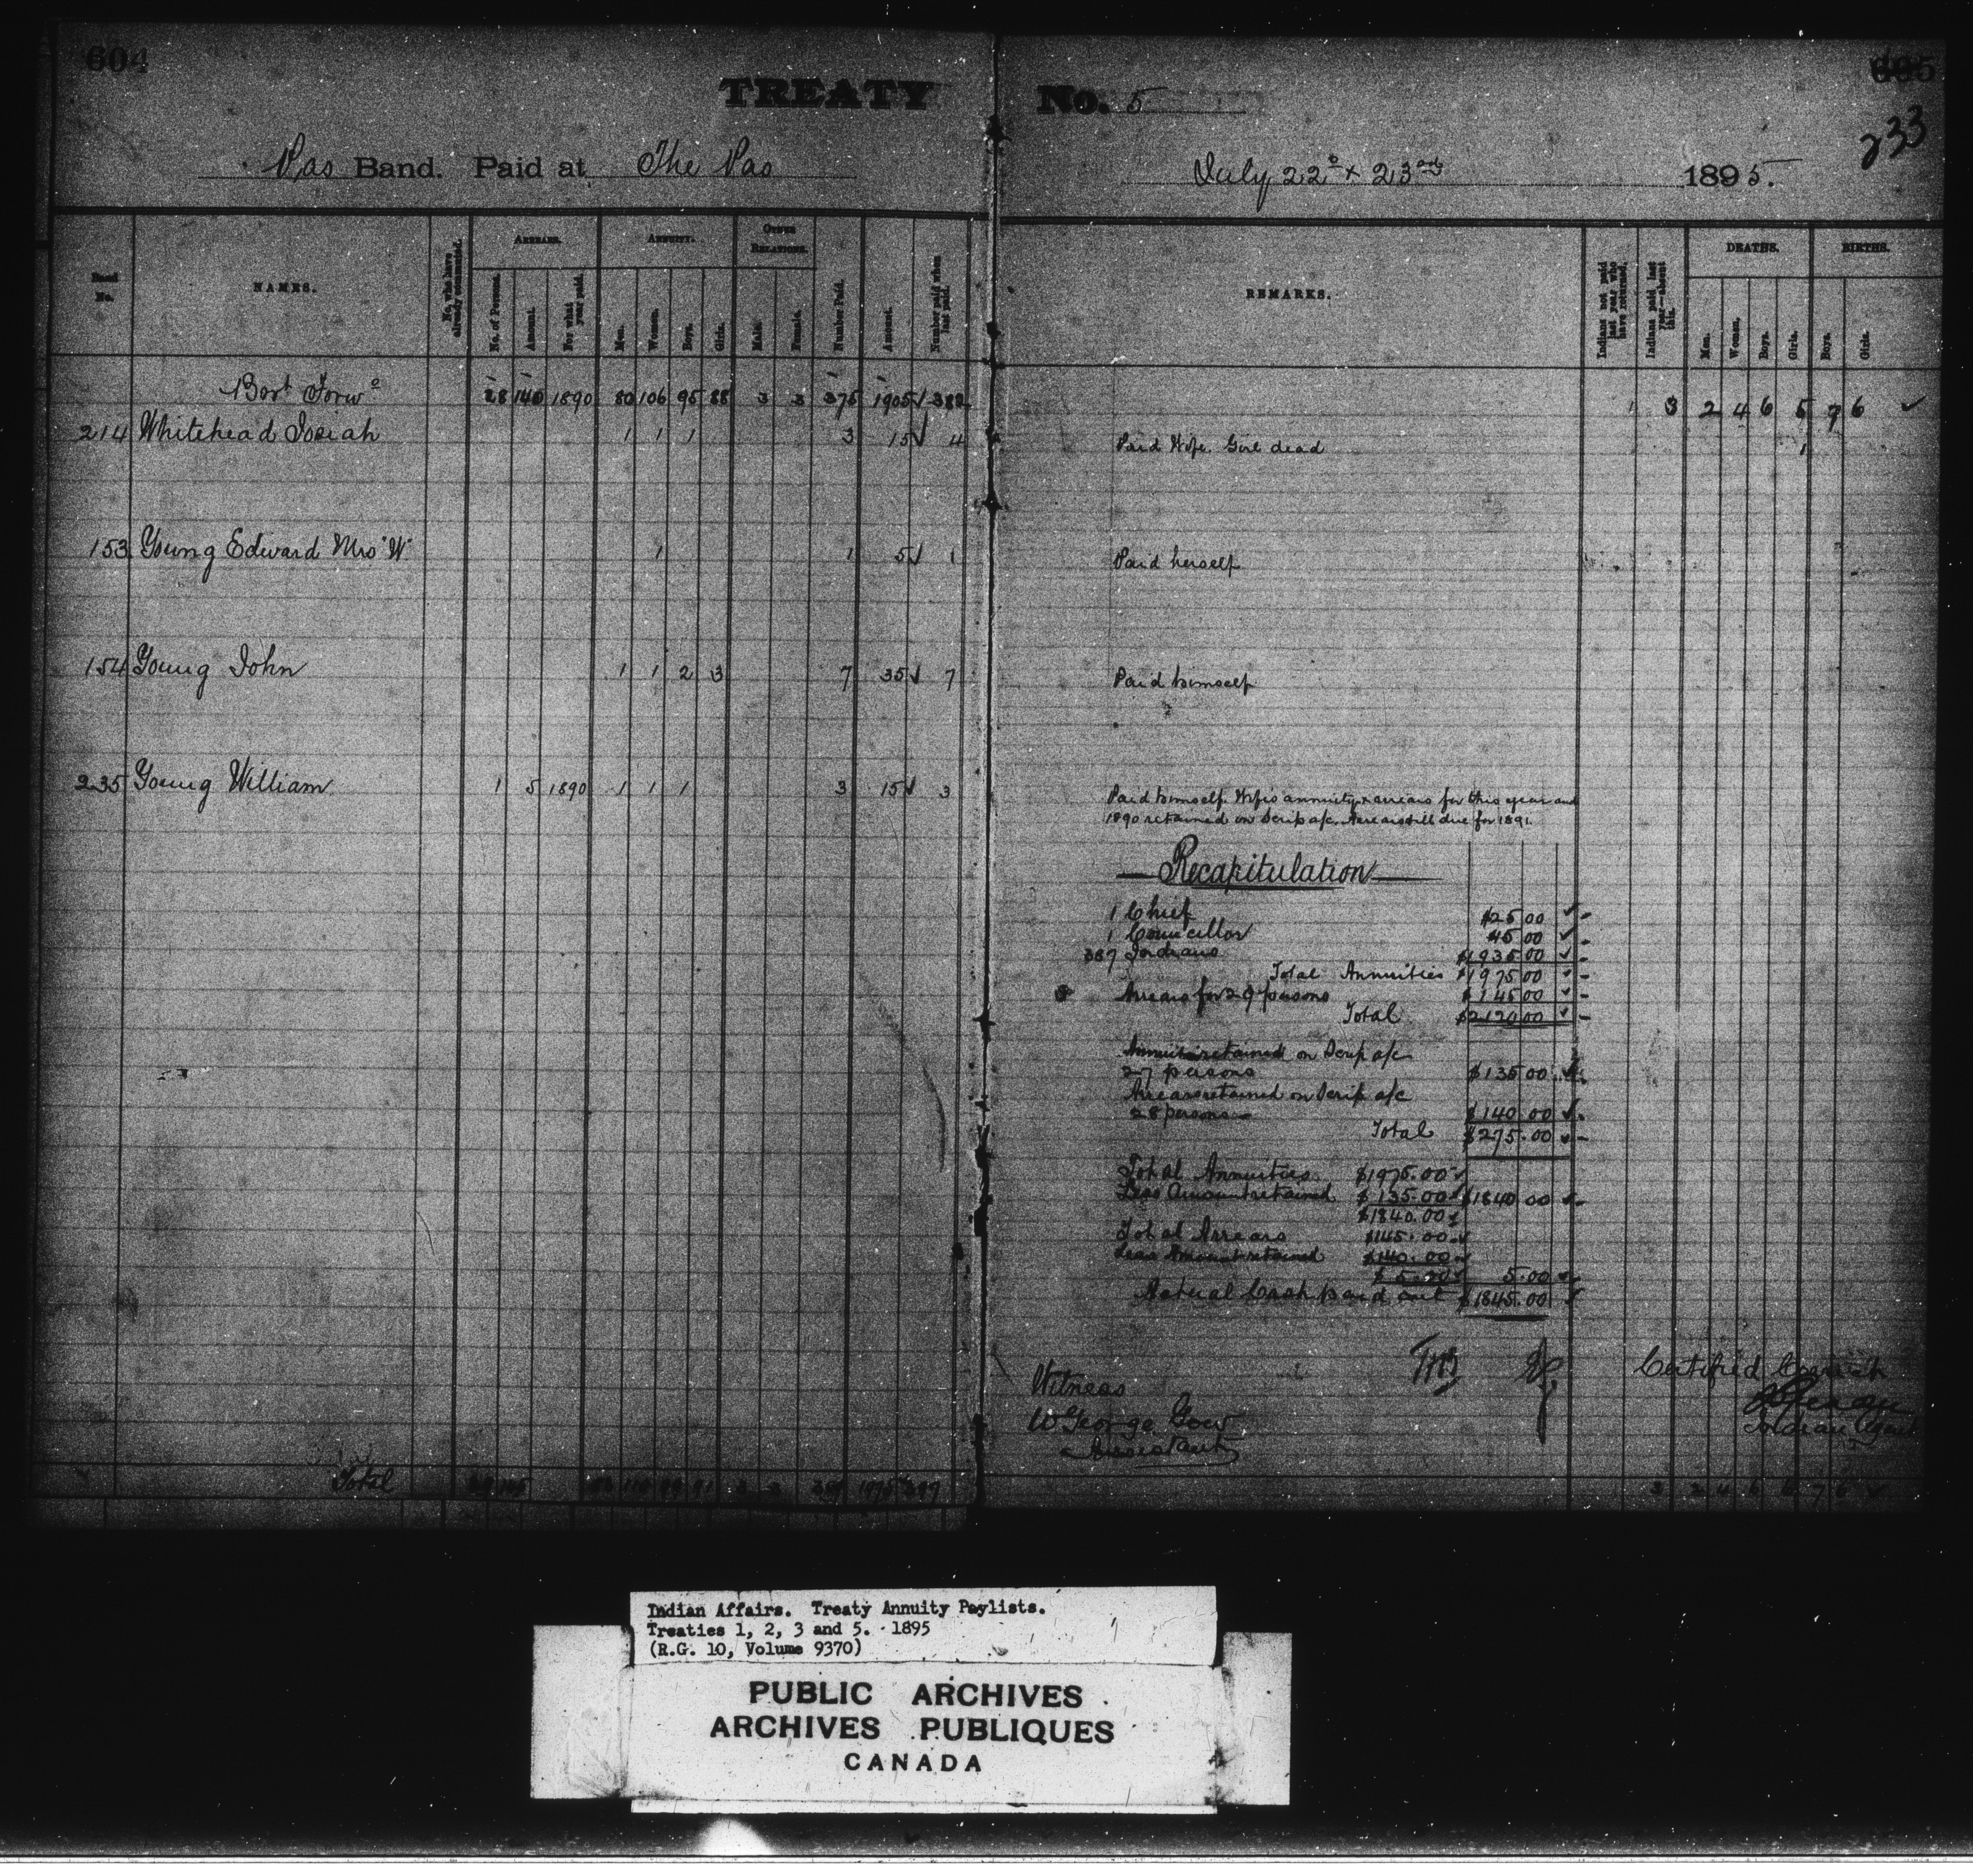 604
TREATY No. 5
605
233
Pas Band. Paid at The Pas July 22d & 23rd 1895.
Band No.
NAMES.
No. who have already commuted.
ARREARS.
No. of Persons.
Amount.
For what year paid.
ANNUITY.
Men.
Women.
Boys.
Girls.
OTHER RELATIONS.
Male.
Female.
Number Paid.
Amount.
Number paid when last paid.
REMARKS.
Indians not paid last year who have returned.
Indians paid last year—absent this.
DEATHS.
Men.
Women.
Boys.
Girls.
BIRTHS.
Boys.
Girls.
Bort Forwd 28 140 1890 80 106 95 88 3 3 375 1905 ✓ 382 1 3 2 4 6 5 7 6 ✓
214 Whitehead Josiah 1 1 1 3 15 ✓ 4 Paid Wife. Girl dead 1
153 Young Edward Mrs "W" 1 1 5 ✓ 1 Paid herself
154 Young John 1 1 2 3 7 35 ✓ 7 Paid himself
235 Young William 1 5 1890 1 1 1 3 15 ✓ 3 Paid himself. Wife's annuity & arrears for this year and
1890 retained on Scrip a/c. Arrears still due for 1891.
Recapitulation
1 Chief $25.00 ✓
1 Councillor 15 00 ✓
387 Indians $1935 00 ✓
Total Annuities $1975 00 ✓
Arrears for 29 persons $145 00 ✓
Total $2120 00 ✓
Annuities retained on Scrip a/c
27 persons $135 00 ✓
Arrears retained on Scrip a/c
28 persons $140 00 ✓
Total $275.00 ✓
Total Annuities $1975.00 ✓
Less Amount retained $135.00 ✓ $1840 00 ✓
$1840.00 ✓
Total Arrears $145.00 ✓
Less Amount retained $140.00 ✓
$5.00 ✓ 5.00 ✓
Actual Cash paid out $1845.00 ✓
Witness
W George Gow
Assistant
Certified Correct
Indian Agent
Total 3 2 4 6 6 7 6 ✓
Indian Affairs. Treaty Annuity Paylists.
Treaties 1, 2, 3 and 5. 1895
(R.G. 10, Volume 9370)
PUBLIC ARCHIVES
ARCHIVES PUBLIQUES
CANADA